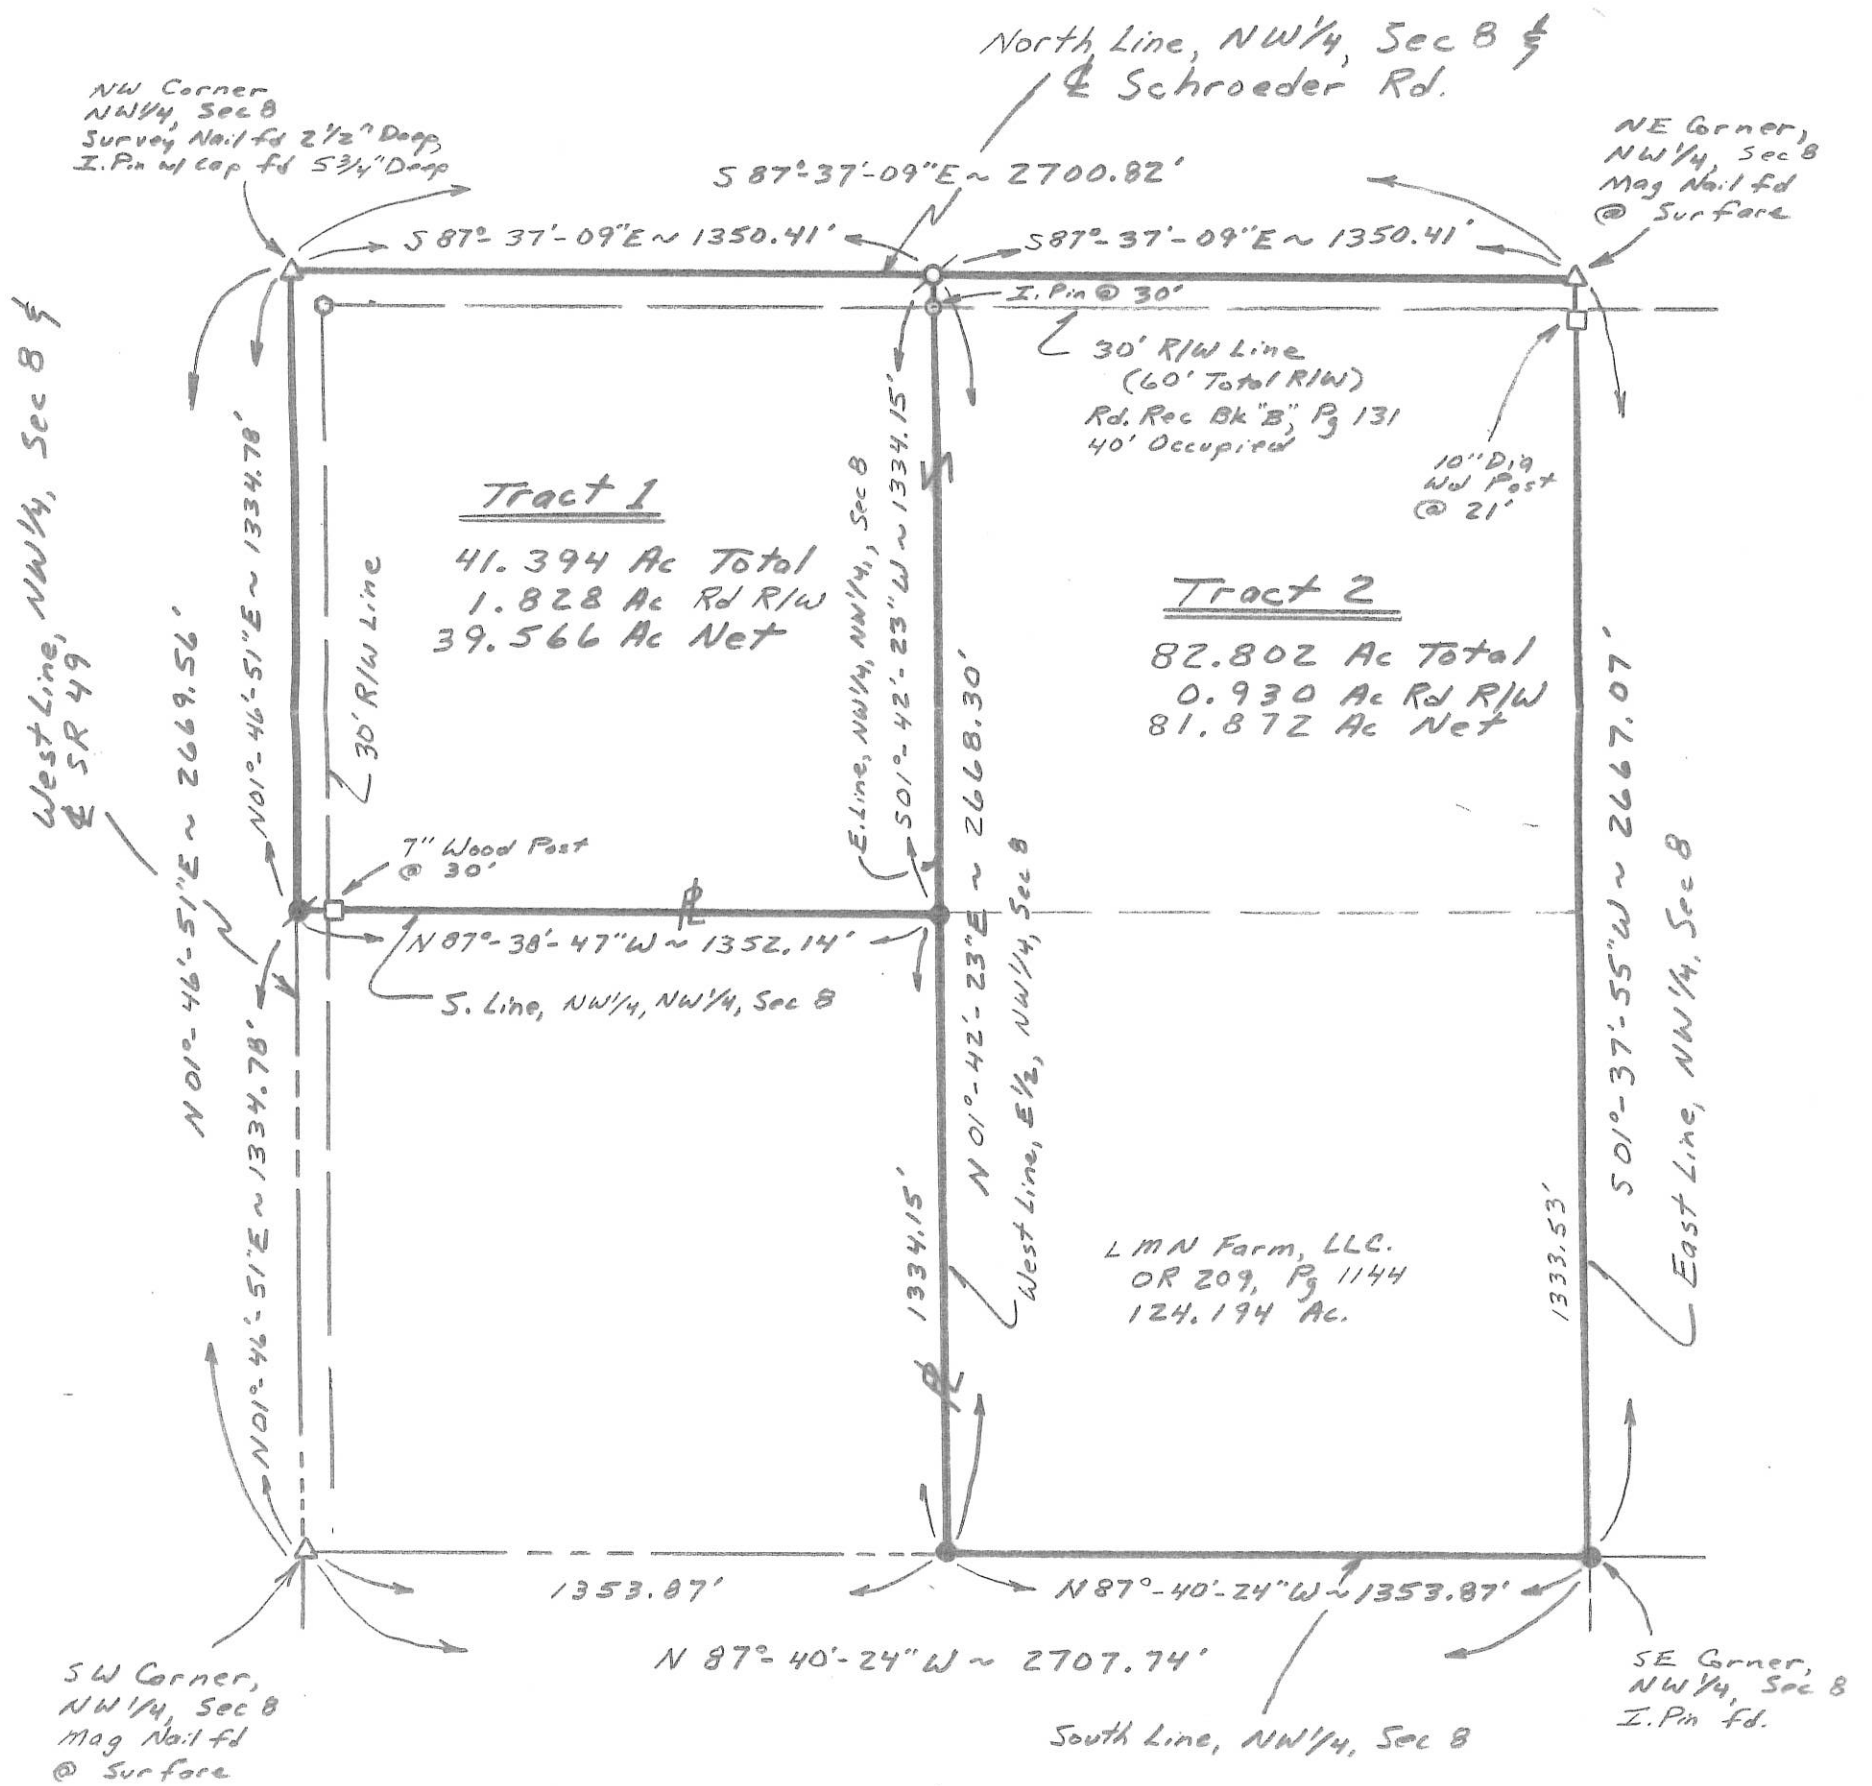 North Line, NW1/4, Sec 8 &
℄ Schroeder Rd.
NW Corner
NW1/4, Sec 8
Survey Nail fd 2 1/2" Deep,
I.Pin w/ Cap fd 5 3/4" Deep
NE Corner,
NW1/4, Sec 8
Mag Nail fd
@ Surface
S 87°-37'-09"E ~ 2700.82'
S 87°-37'-09"E ~ 1350.41'
S87°-37'-09"E ~ 1350.41'
I.Pin @ 30'
30' R/W Line
(60' Total R/W)
Rd. Rec Bk "B", Pg 131
40' Occupied
10" Dia
Wd Post
@ 21'
West Line, NW1/4, Sec 8 &
℄ SR 49
N 01°-46'-51"E ~ 2669.56'
N01°-46'-51"E ~ 1334.78'
30' R/W Line
Tract 1
41.394 Ac Total
1.828 Ac Rd R/W
39.566 Ac Net
E.Line, NW1/4, NW1/4, Sec 8
S01°-42'-23"W ~ 1334.15'
Tract 2
82.802 Ac Total
0.930 Ac Rd R/W
81.872 Ac Net
N 01°-42'-23"E ~ 2668.30'
West Line, E1/2, NW1/4, Sec 8
S 01°-37'-55"W ~ 2667.07'
East Line, NW1/4, Sec 8
7" Wood Post
@ 30'
PL
N 87°-38'-47"W ~ 1352.14'
S. Line, NW1/4, NW1/4, Sec 8
N01°-46'-51"E ~ 1334.78'
1334.15'
1333.53'
LMN Farm, LLC.
OR 209, Pg 1144
124.194 Ac.
PL
1353.87'
N 87°-40'-24"W ~ 1353.87'
N 87°-40'-24"W ~ 2707.74'
SW Corner,
NW1/4, Sec 8
Mag Nail fd
@ Surface
South Line, NW1/4, Sec 8
SE Corner,
NW1/4, Sec 8
I.Pin fd.